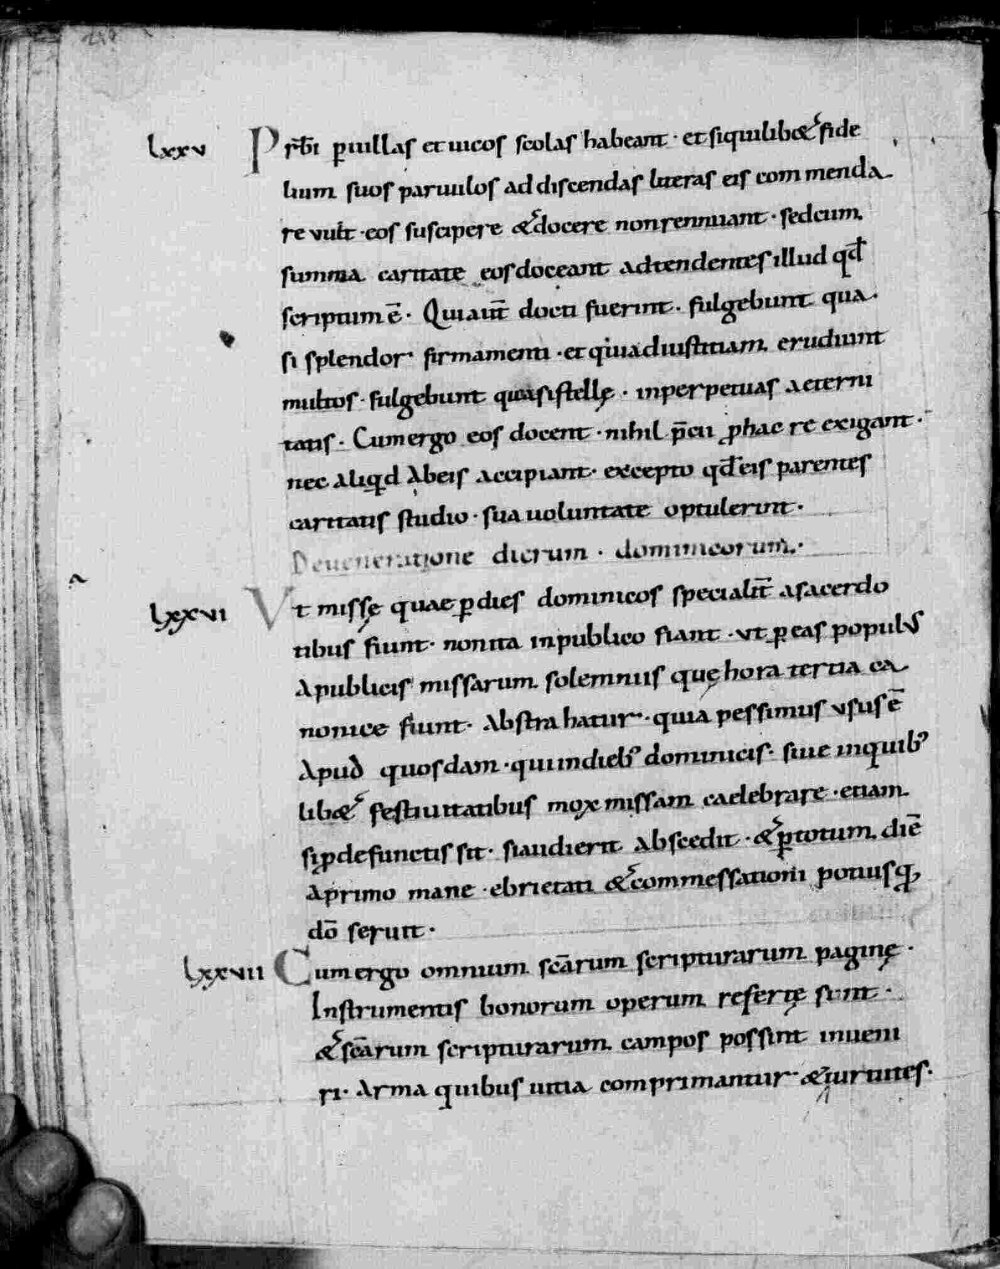 lxxv Prƀi ꝑ uillas et uicos scolas habeant · et siquilib& fide
lium suos paruulos ad discendas litteras eis commenda
re vult · eos suscipere & docere non rennuant · sed cum
summa caritate eos doceant adtendentes illud qđ
scriptum ē · Qui aut̄ docti fuerint · fulgebunt qua
si splendor firmamenti · et qui ad iustitiam erudiunt
multos · fulgebunt quasi stellę · in perpetuas aeterni
tatis · Cum ergo eos docent · nihil p̄cii ꝓ hac re exigant ·
nec aliqđ ab eis accipiant · excepto qđ eis parentes
caritatis studio · sua uoluntate optulerint ·
De ueneratione dierum · dominicorum ·
lxxvi Vt missę quae ꝑ dies dominicos specialit̄ a sacerdo
tibus fiunt · non ita in publico fiant · vt ꝑ eas populus
a publicis missarum solemniis quę hora tertia ca
nonice fiunt · abstrahatur · quia pessimus vsus ē
apud quosdam · qui in dieb; dominicis · siue in quib;
lib& festiuitatibus mox missam caelebrare · etiam
si ꝓ defunctis sit · si audierit abscedit · & ꝑ totum diē
a primo mane · ebrietati & commessationi potiusq;
dō seruit ·
lxxvii Cum ergo omnium scārum scripturarum paginę ·
Instrumentis bonorum operum refertę sunt ·
& scārum scripturarum campos possint inueni
ri · Arma quibus uitia comprimantur & uirtutes ·